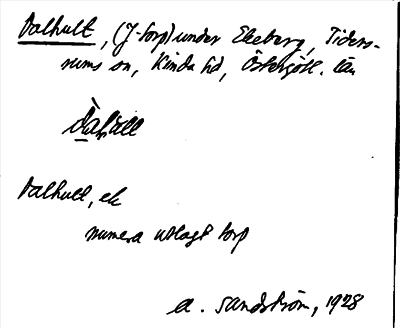 Dalhult, (J-torp) under Ekeberg, Tiders-
rums sn, Kinda hd, Östergötl. län
dàhult
Dalhult, ek
numera utlagt torp
A. Sandström, 1928